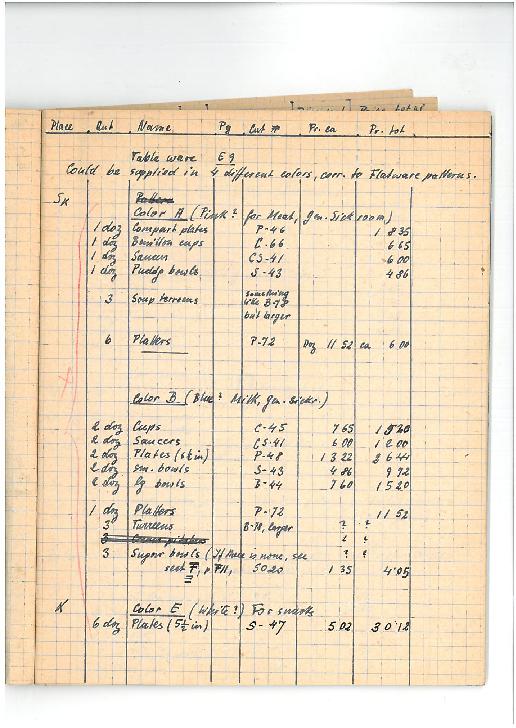 Place Qut Name Pg Cat # Pr. ea Pr. tot
Table ware E 9
Could be supplied in 4 different colors, corr. to Flatware patterns.
SK Pattern
Color A (Pink? for Meat, gen. Sick room)
1 doz Compart plates P-46 1 8 35
1 doz Bouillon cups C-66 6 65
1 doz Saucers CS-41 6 00
1 doz Puddg bowls S-43 4 86
3 Soup terreens something like B-78 but larger
6 Platters P-72 Doz 11 52 ea 6 00
Color B (Blue? Milk, gen. Sickr.)
2 doz Cups C-45 7 65 1 5 30
2 doz Saucers CS-41 6 00 1 2 00
2 doz Plates (6½ in) P-48 1 3 22 2 6 44
2 doz sm. bowls S-43 4 86 9 72
2 doz lg bowls B-44 7 60 1 5 20
1 doz Platters P-72 11 52
3 Turreens B-78, larger ? ?
3 ? ?
3 Sugar bowls (If there is none, see ? ?
sect F, p. F11, SO20 1 35 4 05
K Color E (White?) For snacks
6 doz Plates (5½ in) S-47 5 02 3 0 12